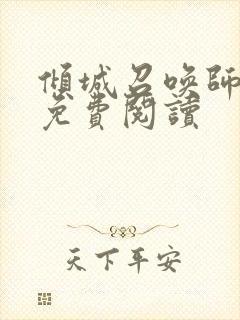 傾城召喚師
免費閱讀
天下平安